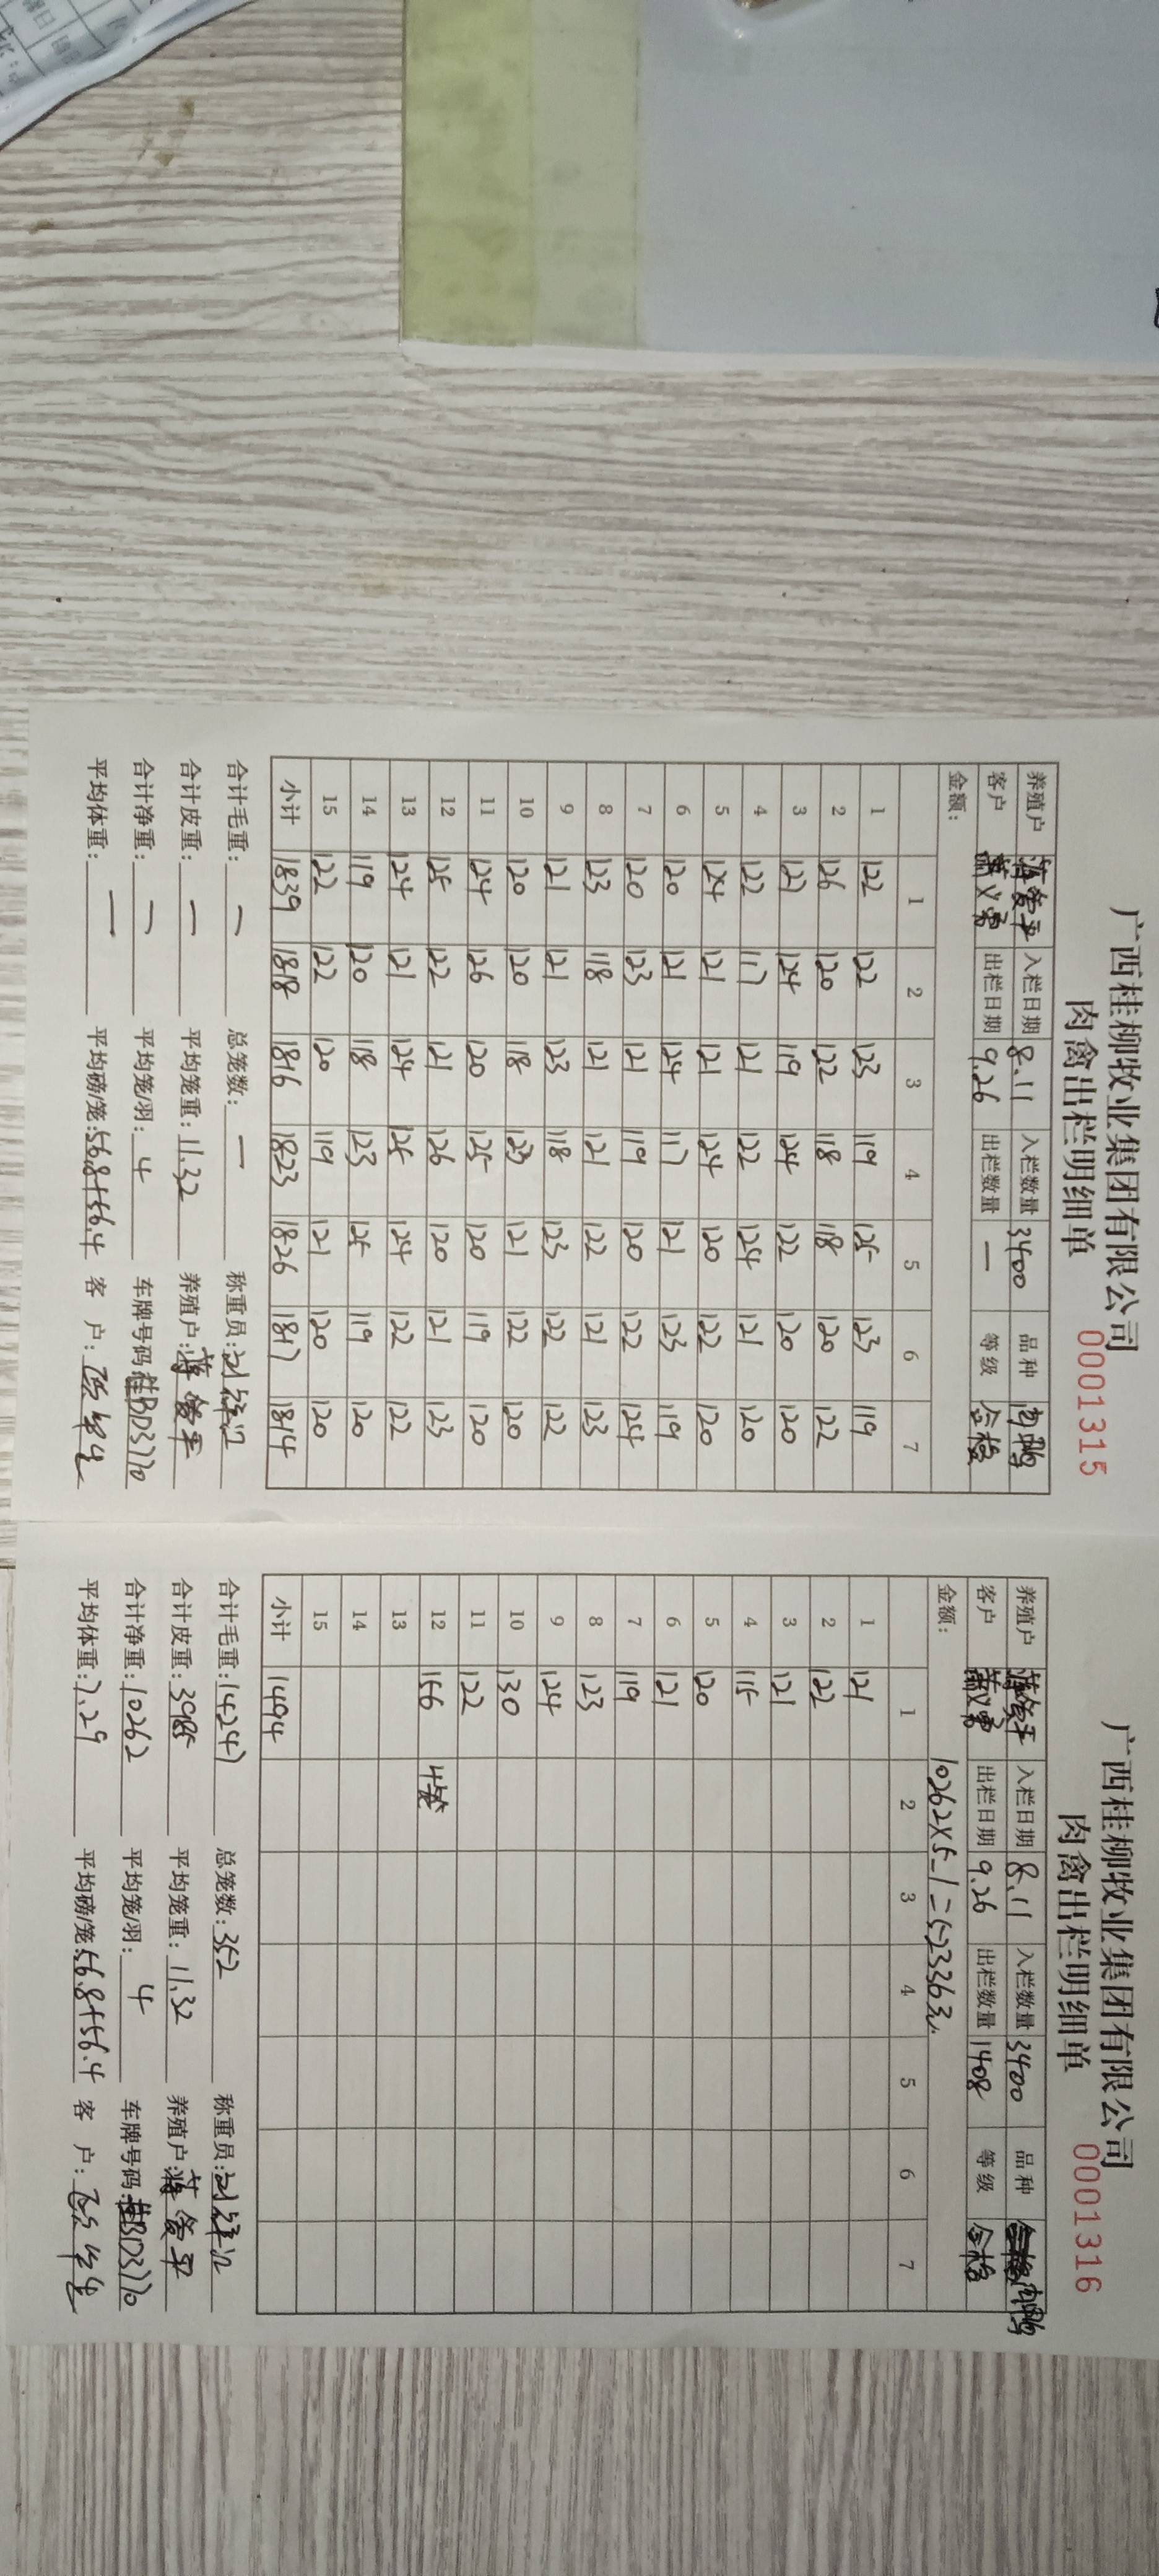 广西桂柳牧业集团有限公司
肉禽出栏明细单 0001315
养殖户 入栏日期 8.11 入栏数量 3400 品种 肉鸭
客户 出栏日期 9.26 出栏数量 一 等级 合格
金额：
1 2 3 4 5 6 7
1 122 122 123 119 125 123 119
2 126 120 122 118 118 120 122
3 127 124 119 124 122 120 120
4 122 117 121 122 124 121 120
5 124 121 121 124 120 122 120
6 120 121 124 117 121 123 119
7 120 123 121 119 120 122 124
8 123 118 121 121 122 121 123
9 121 121 123 118 123 122 122
10 120 120 118 123 121 122 120
11 124 126 120 125 120 119 120
12 125 122 121 126 120 121 123
13 124 121 124 125 124 122 122
14 119 120 118 123 125 119 120
15 122 122 120 119 121 120 120
小计 1839 1818 1816 1823 1826 1817 1814
合计毛重：一 总笼数：一 称重员：
合计皮重：一 平均笼重：11.32 养殖户：
合计净重：一 平均笼/羽：4 车牌号码：桂BD3770
平均体重：一 平均磅/笼：56.8+56.4 客 户：
广西桂柳牧业集团有限公司
肉禽出栏明细单 0001316
养殖户 入栏日期 8.11 入栏数量 3400 品种 肉鸭
客户 出栏日期 9.26 出栏数量 1408 等级 合格
金额： 10262×5.1=52336元
1 2 3 4 5 6 7
1 121
2 122
3 121
4 115
5 120
6 121
7 119
8 123
9 124
10 130
11 122
12 156 4笼
13
14
15
小计 1494
合计毛重：14247 总笼数：352 称重员：
合计皮重：3985 平均笼重：11.32 养殖户：
合计净重：10262 平均笼/羽：4 车牌号码：桂BD3770
平均体重：7.29 平均磅/笼：56.8+56.4 客 户：